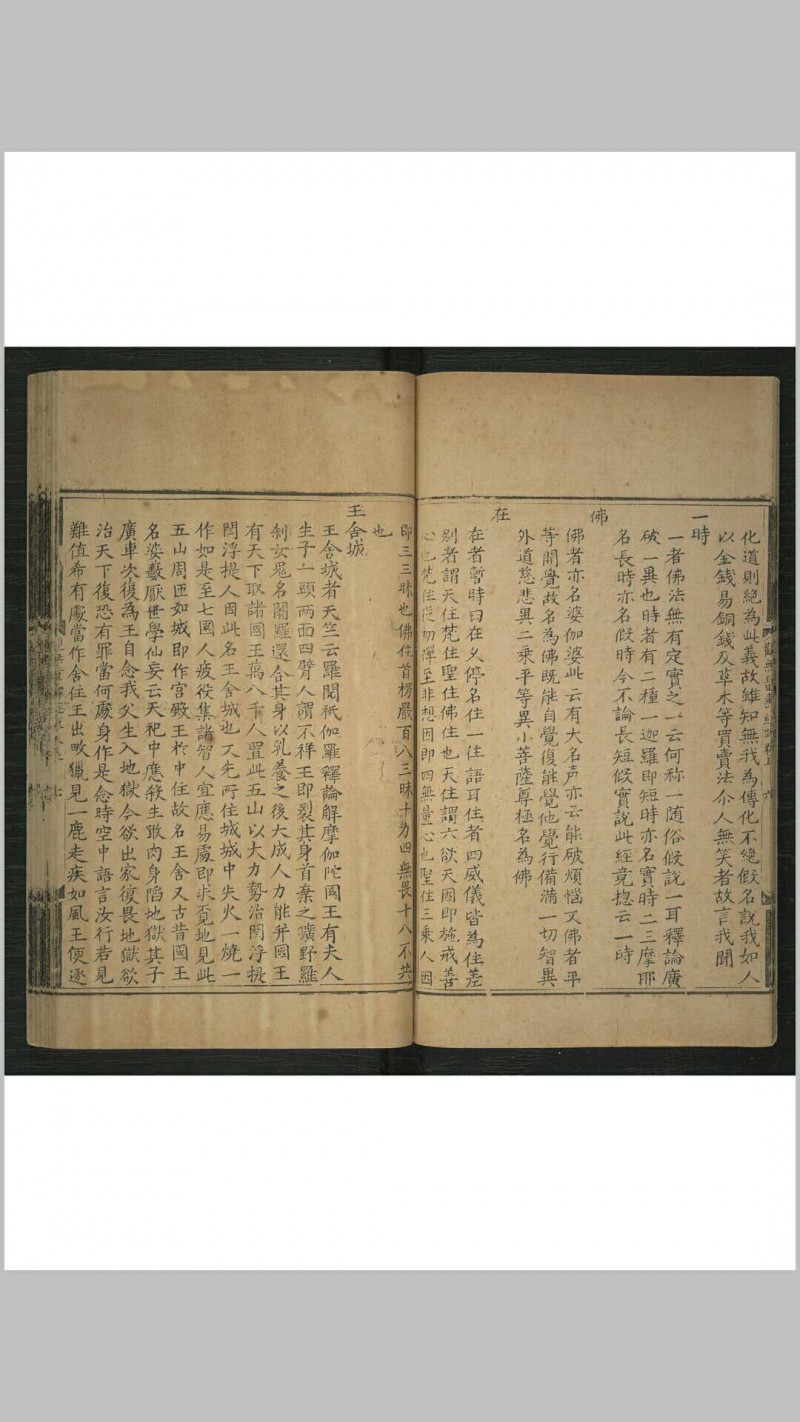 化道則絶為此義故雖知無我為傳化不絶假名說我如人
以金錢易銅錢及草木等買賣法尒人無笑者故言我聞
一時
一者佛法無有定實之一云何称一随俗假說一耳釋論廣
破一異也時者有二種一迦羅即短時亦名實時二三摩耶
名長時亦名假時今不論長短假實說此經竟揔云一時
佛
佛者亦名婆伽婆此云有大名声亦云能破煩惱又佛者平
等開覺故名為佛既能自覺復能覺他覺行備滿一切智異
外道慈悲異二乗平等異小菩薩尊極名為佛
在
在者暫時曰在久停名住一往語耳住者四威儀皆為住差
别者謂天住梵住聖住佛住也天住謂六欲天因即施戒善
心也梵住從初禪至非想因即四無量心也聖住三乗人因
即三三昧也佛住首楞嚴百八三昧十力四無畏十八不共
也
王舍城
王舍城者天竺云羅閱祇伽羅釋論解摩伽陀國王有夫人
生子一頭兩面四臂人謂不祥王即裂其身首棄之曠野羅
刹女鬼名闍羅還合其身以乳養之後大成人力能并國王
有天下取諸國王萬八千人置此五山以大力勢治閻浮提
閻浮提人因此名王舍城也又先所住城城中失火一燒一
作如是至七國人疲役集諸智人宜應易處即求覔地見此
五山周匝如城即作宮殿王於中住故名王舍又古昔國王
名婆藪厭世學仙妄云天祀中應殺生噉肉身陷地獄其子
廣車次復為王自念我父生入地獄今欲出家復畏地獄欲
治天下復恐有罪當何處身作是念時空中語言汝行若見
難值希有處當作舍住王出畋獵見一鹿走疾如風王便逐